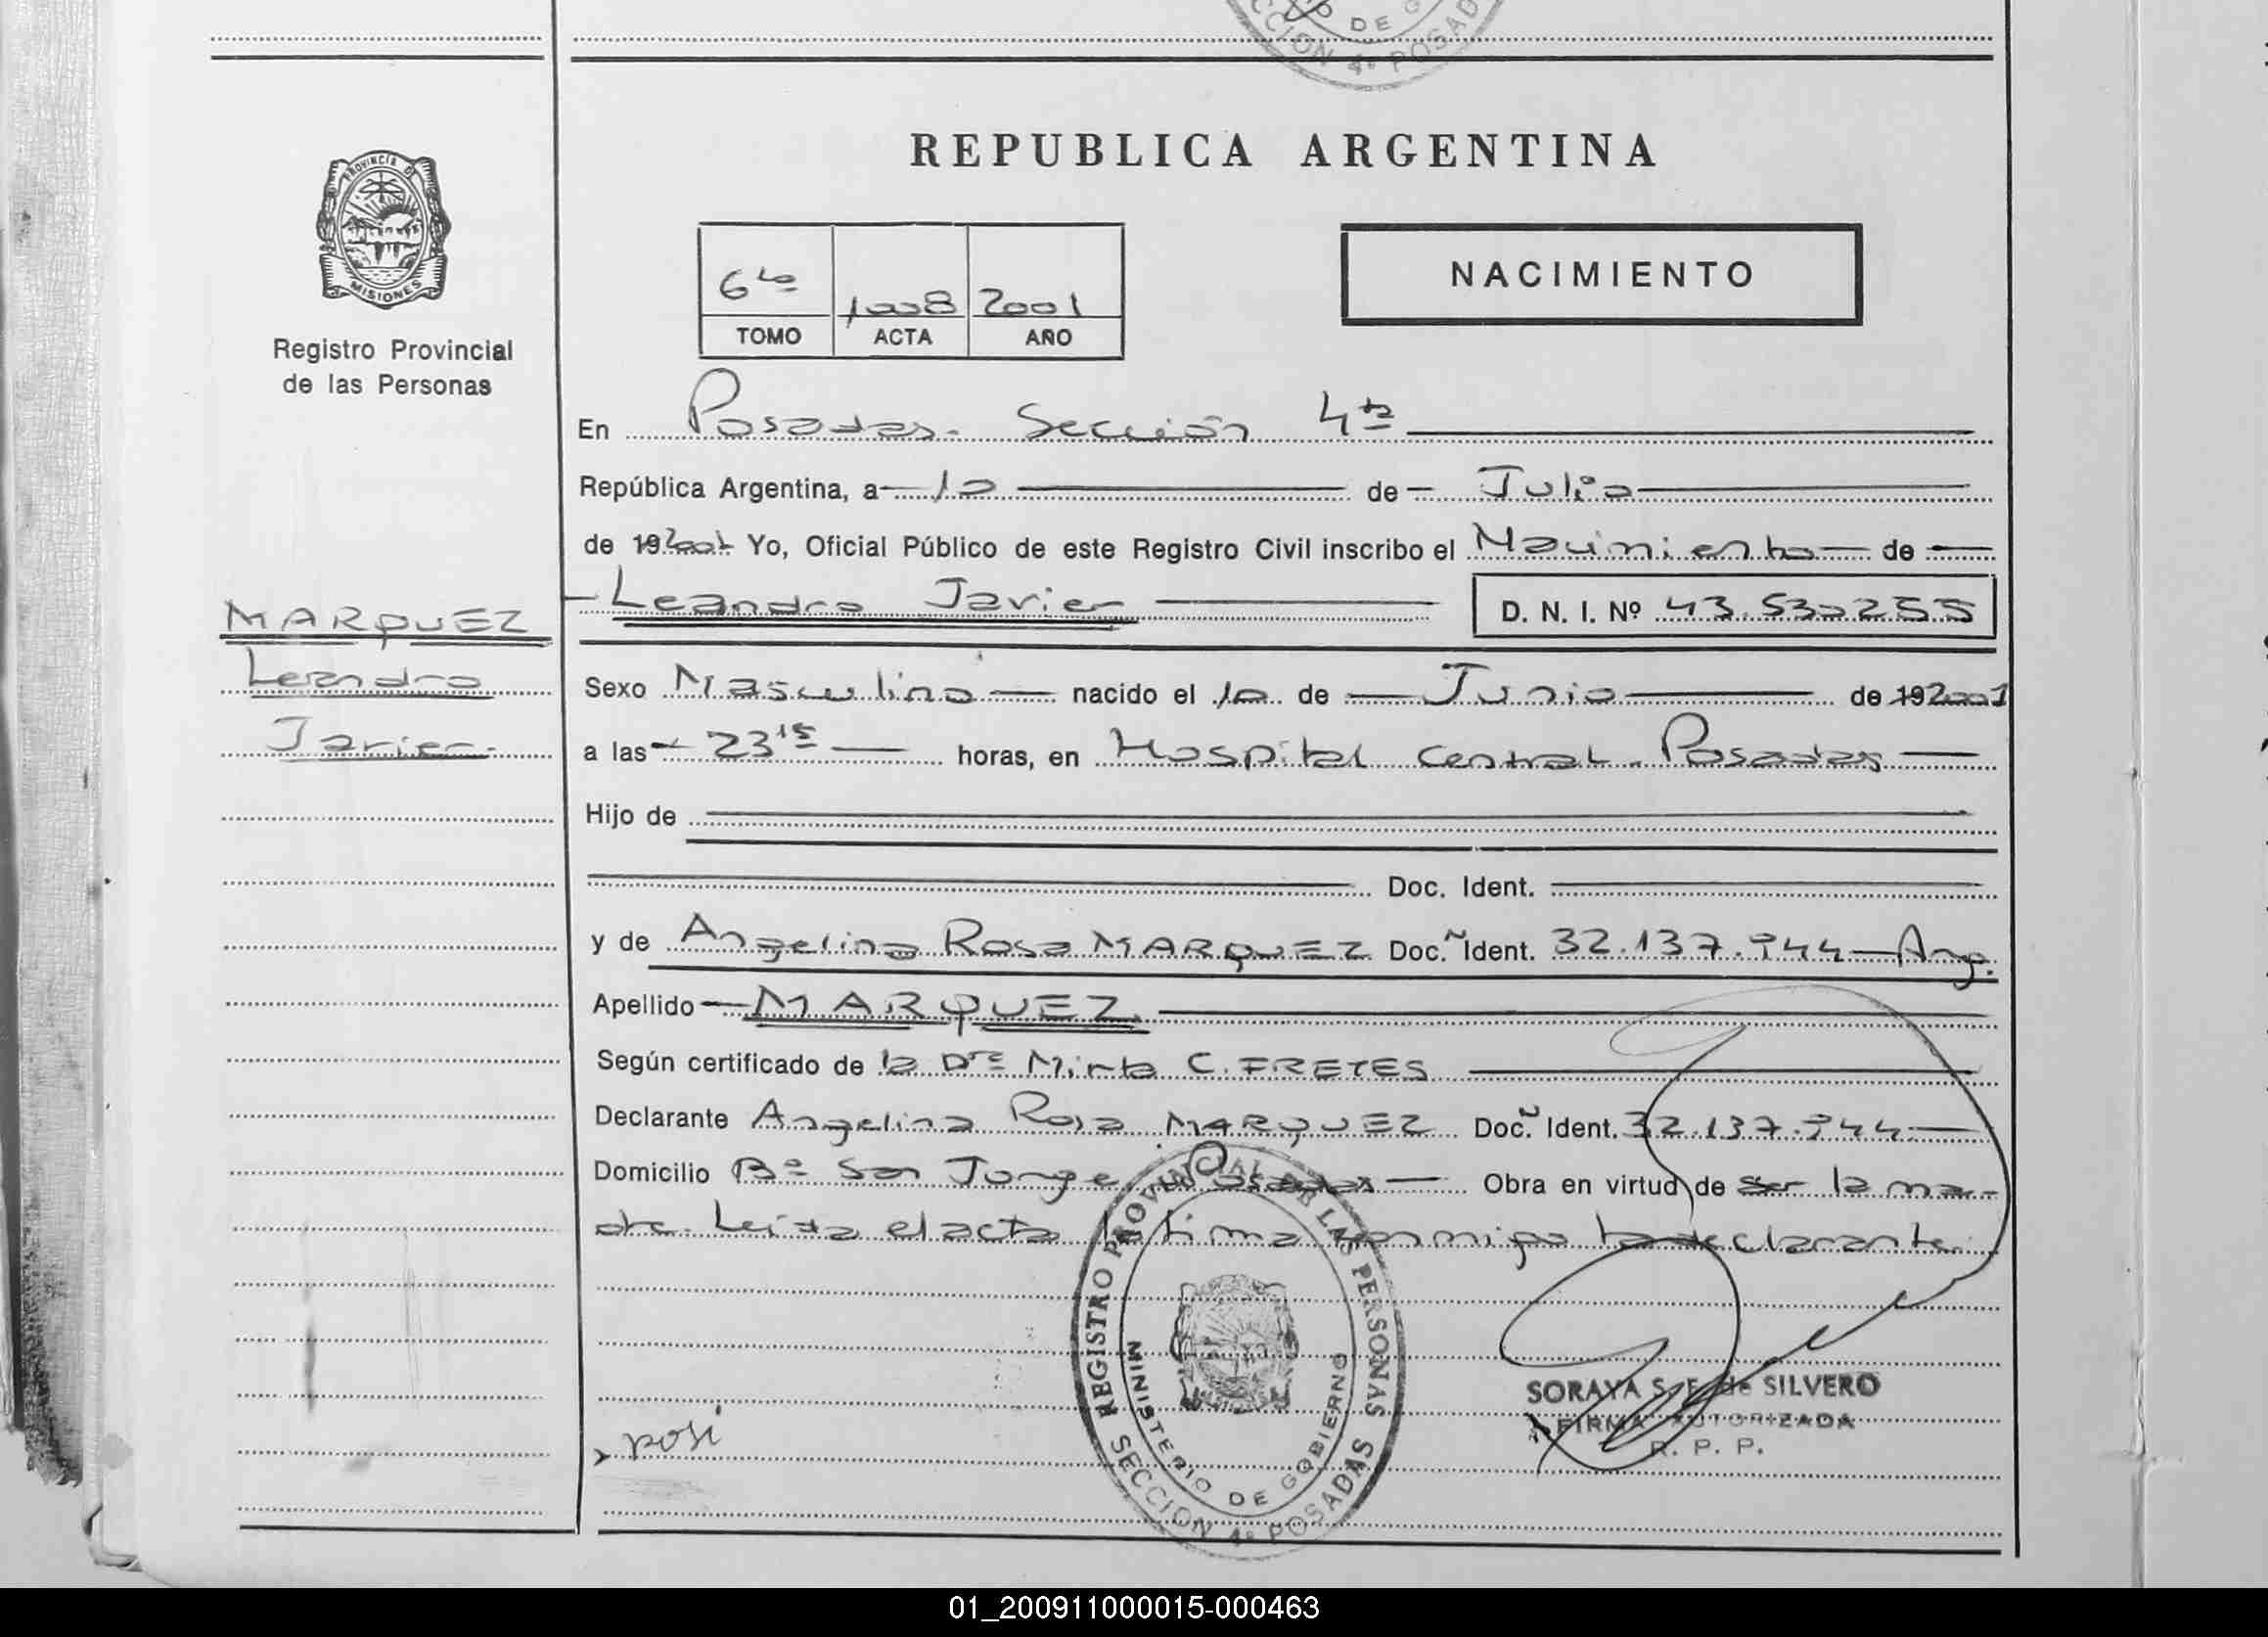 CCION 4º POSAD
DE G
REPUBLICA ARGENTINA
PROVINCIA DE
MISIONES
Registro Provincial
de las Personas
6to 1008 2001
TOMO ACTA AÑO
NACIMIENTO
En Posadas. Sección 4ta
República Argentina, a 10 de Julio
de 19 2001 Yo, Oficial Público de este Registro Civil inscribo el Nacimiento de
Leandro Javier D. N. I. Nº 43.530255
MARQUEZ
Leandro
Javier.
Sexo Masculino nacido el 10 de Junio de 19 2001
a las 23 15 horas, en Hospital Central. Posadas
Hijo de
Doc. Ident.
y de Angelina Rosa MARQUEZ Doc. Ident. 32.137.944 Arg.
Apellido MARQUEZ.
Según certificado de la Dra Mirta C. FRETES
Declarante Angelina Rosa MARQUEZ Doc. Ident. 32.137.944
Domicilio Bº San Jorge. Posadas Obra en virtud de ser la ma-
dre. Leida el acta la firma conmigo la declarante.
REGISTRO PROVINCIAL DE LAS PERSONAS
MINISTERIO DE GOBIERNO
SECCION 4º POSADAS
SORAYA S. F. de SILVERO
FIRMA AUTORIZADA
R. P. P.
rosi
01_200911000015-000463